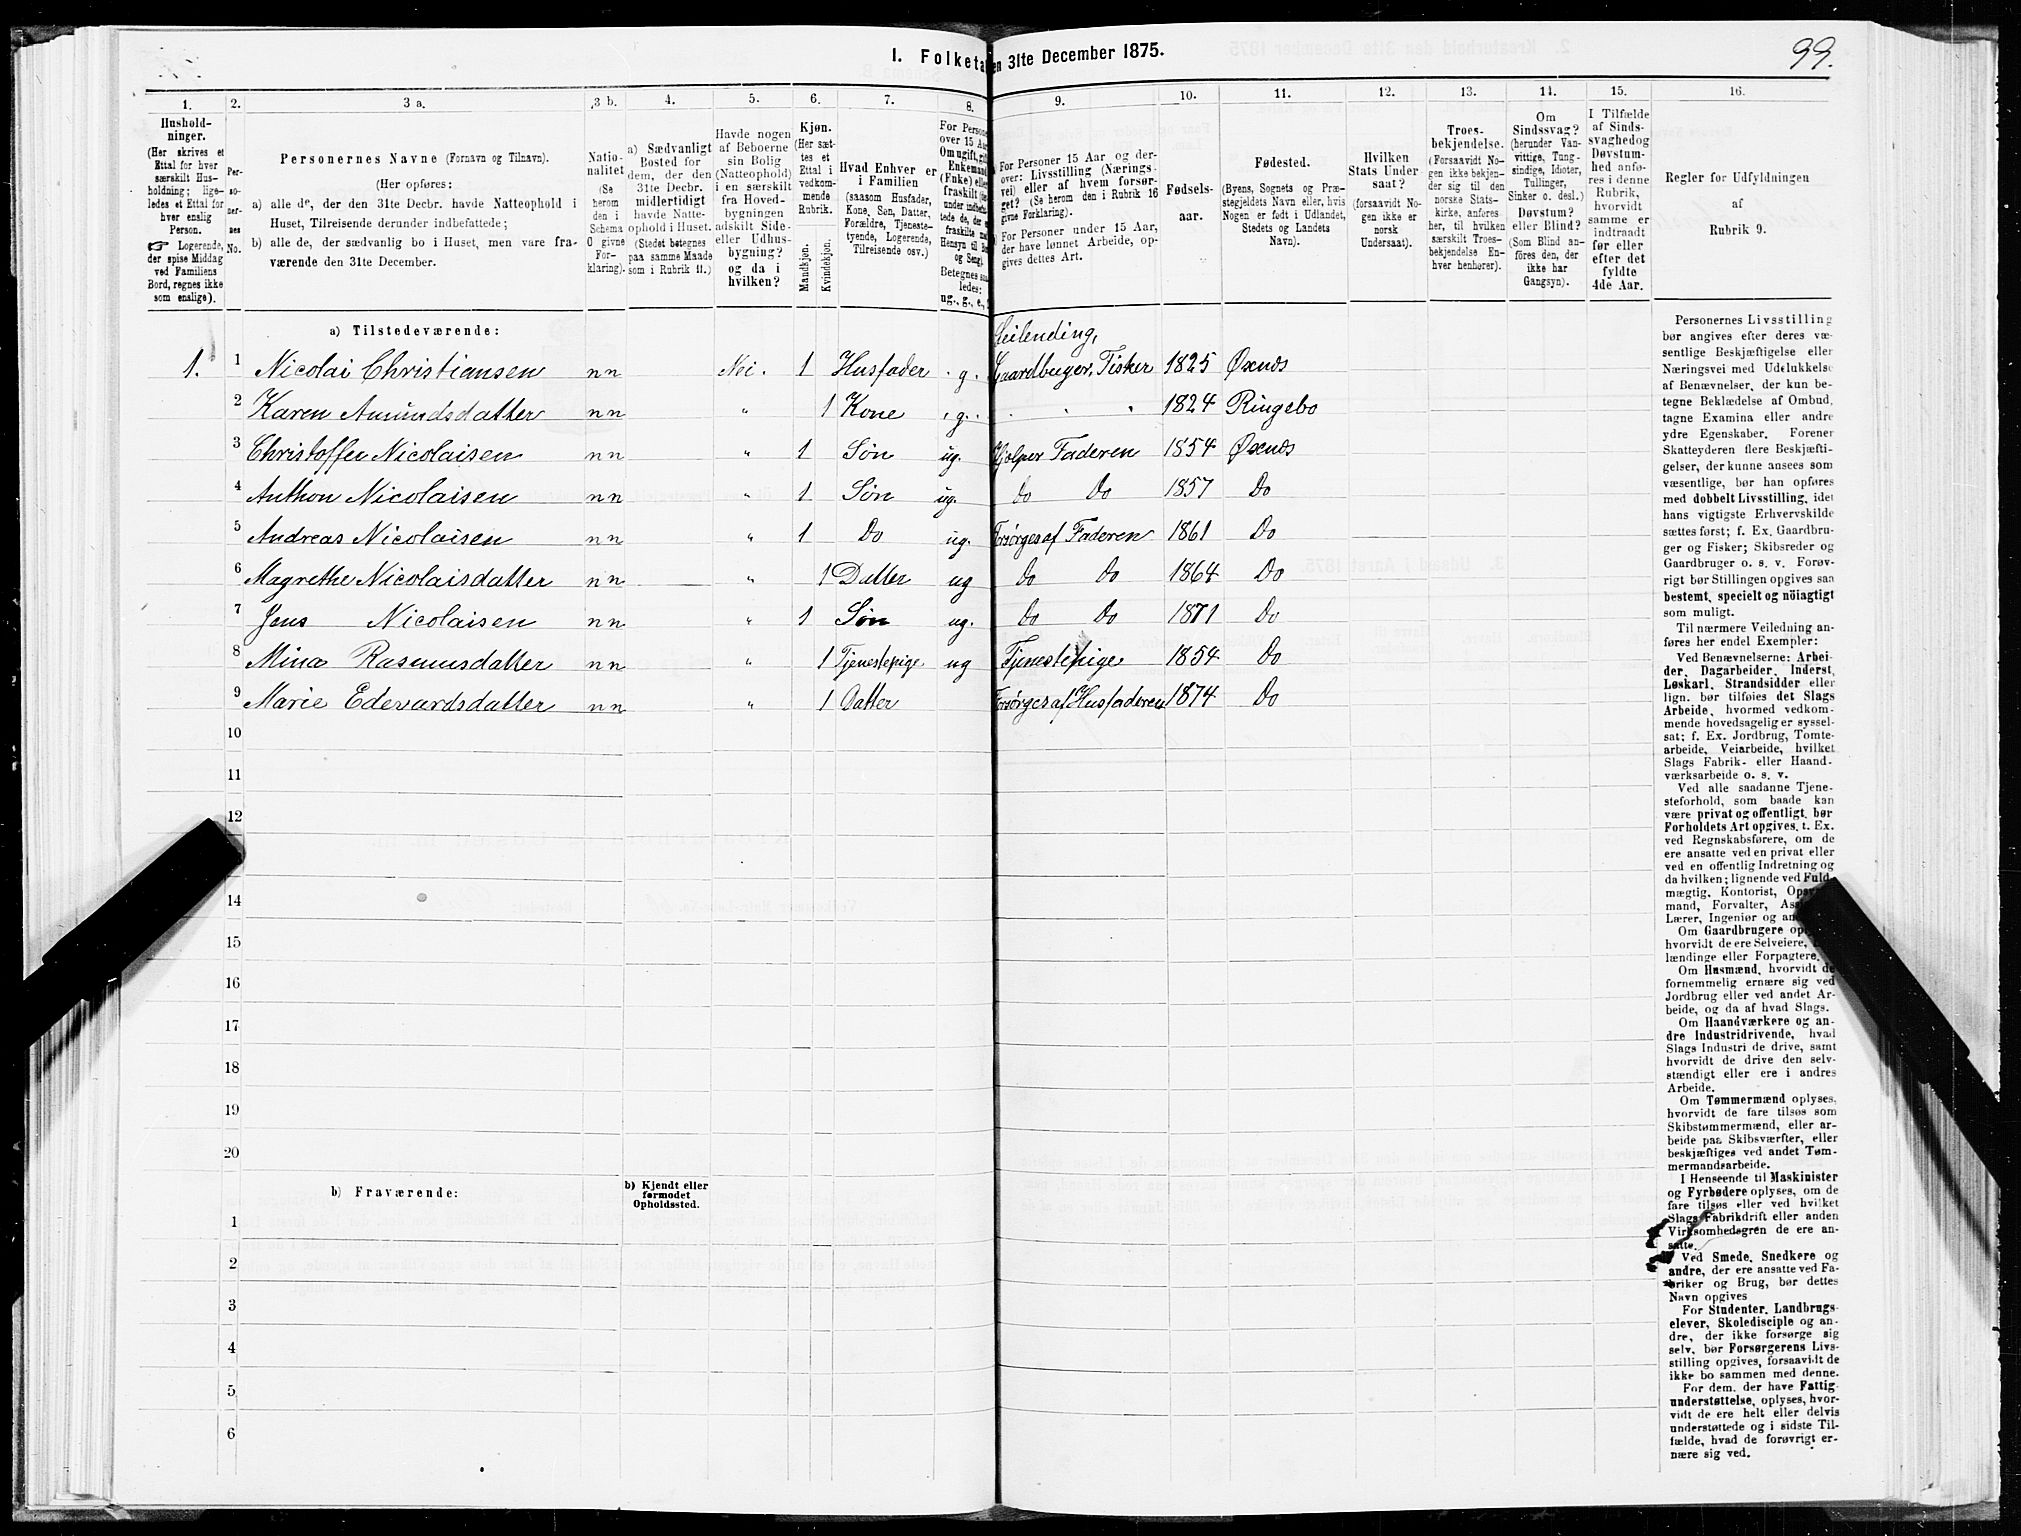 99.
I. Folketa en 31te December 1875.
1. 2. 3 a. 3 b. 4. 5. 6. 7. 8. 9. 10. 11. 12. 13. 14. 15. 16.
Hushold-
ninger.
(Her skrives et
Ettal for hver
særskilt Hus-
holdning; lige-
ledes et Ettal for
hver enslig
Person.
☞ Logerende,
der spise Middag
ved Familiens
Bord, regnes ikke
som enslige).
Per-
so-
ner-
nes
No.
Personernes Navne (Fornavn og Tilnavn).
(Her opføres:
a) alle de, der den 31te Decbr. havde Natteophold i
Huset, Tilreisende derunder indbefattede;
b) alle de, der sædvanlig bo i Huset, men vare fra-
værende den 31te December.
Natio-
nalitet
(Se
herom
den i
Schema
O givne
For-
klaring).
a) Sædvanligt
Bosted for
dem, der den
31te Decbr.
midlertidigt
havde Natte-
ophold i Huset.
(Stedet betegnes
paa samme Maade
som i Rubrik 11.)
Havde nogen
af Beboerne
sin Bolig
(Natteophold)
i en særskilt
fra Hoved-
bygningen
adskilt Side-
eller Udhus-
bygning?
og da i
hvilken?
Kjøn.
(Her sæt-
tes et
Ettal i
vedkom-
mende
Rubrik.
Mandkjøn.
Kvindekjøn.
Hvad Enhver er
i Familien
(saasom Husfader,
Kone, Søn, Datter,
Forældre, Tjeneste-
tyende, Logerende,
Tilreisende osv.)
For Persone
over 15 Aar
Om ugift, gift
Enkemand
(Enke) elle
fraskilt
Betegnes saa
ledes:
ug., g., e.,
For Personer 15 Aar og der-
over: Livsstilling (Nærings-
vei) eller af hvem forsør-
get? (Se herom den i Rubrik 16
givne Forklaring).
For Personer under 15 Aar,
der have lønnet Arbeide, op-
gives dettes Art.
Fødsels-
aar.
Fødested.
(Byens, Sognets og Præ-
stegjeldets Navn eller, hvis
Nogen er født i Udlandet,
Stedets og Landets
Navn).
Hvilken
Stats Under
saat?
(forsaavidt No-
gen ikke er
norsk
Undersaat).
Troes-
bekjendelse.
(Forsaavidt No-
gen ikke bekjen-
der sig til den
norske Stats-
kirke, anføres
her, til hvilken
særskilt Troes-
bekjendelse En-
hver henhører).
Om
Sindssvag?
(herunder Van-
vittige, Tung-
sindige, Idioter,
Tullinger,
Sinker o. desl.)
Døvstum?
eller Blind?
(Som Blind an-
føres den, der
ikke har
Gangsyn).
I Tilfælde
af Sinds-
svaghed og
Døvstum-
hed anfø-
res i denne
Rubrik,
hvorvidt
samme er
indtraadt
før eller
efter det
fyldte
4de Aar.
Regler for Udfyldningen
af
Rubrik 9.
a) Tilstedeværende:
Leilending,
1. 1 Nicolai Christiansen nn Nei. 1 Husfader g. Gaardbruger, Fisker 1825 Øxnds
2 Karen Amundsdatter nn " 1 Kone g. " " 1824 Ringebo
3 Christoffer Nicolaisen nn " 1 Søn ug. Hjelper Faderen 1854 Øxnds
4 Anthon Nicolaisen nn " 1 Søn ug. Do Do 1857 Do
5 Andreas Nicolaisen nn " 1 Do ug. Forsørges af Faderen 1861 Do
6 Magrethe Nicolaisdatter nn " 1 Datter ug Do Do 1864 Do
7 Jens Nicolaisen nn " 1 Søn ug. Do Do 1871 Do
8 Mina Rasmusdatter nn " 1 Tjenestepige ug Tjenestepige 1854 Do
9 Marie Edevardsdatter nn " 1 Datter Forsørges af Husfaderen 1874 Do
10
11
12
14
15
16
17
18
19
20
b) Fraværende:
b) Kjendt eller
formodet
Opholdssted.
1
2
3
4
5
6
Personernes Livsstilling
bør angives efter deres væ-
sentlige Beskjæftigelse eller
Næringsvei med Udelukkelse
af Benævnelser, der kun be-
tegne Beklædelse af Ombud,
tagne Examina eller andre
ydre Egenskaber. Forener
Skatteyderen flere Beskjæfti-
gelser, der kunne ansees som
væsentlige, bør han opføres
med dobbelt Livsstilling, idet
hans vigtigste Erhvervskilde
sættes først; f. Ex. Gaardbru-
ger og Fisker; Skibsreder og
Gaardbruger o. s. v. Forøv-
rigt bør Stillingen opgives saa
bestemt, specielt og nöiagtigt
som muligt.
Til nærmere Veiledning an-
føres her endel Exempler:
Ved Benævnelserne: Arbei-
der, Dagarbeider, Inderst,
Løskarl, Strandsidder eller
lign. bør tilføies det Slags
Arbeide, hvormed vedkom-
mende hovedsagelig er syssel-
sat; f. Ex. Jordbrug, Tomte-
arbeide, Veiarbeide, hvilket
Slags Fabrik- eller Haand-
værksarbeide o. s. v.
Ved alle saadanne Tjene-
steforhold, som baade kan
være privat og offentligt, bør
Forholdets Art opgives, t. Ex.
ved Regnskabsførere, om de
ere ansatte ved en privat eller
ved en offentlig Indretning og
da hvilken; lignende ved Fuld-
mægtig, Kontorist, Opsy
mand, Forvalter, Ass
Lærer, Ingeniør og an
Om Gaardbrugere op
hvorvidt de ere Selveiere,
lændinge eller Forpagtere.
Om Husmænd, hvorvidt de
fornemmelig ernære sig ved
Jordbrug eller ved andet Ar-
beide, og da af hvad Slags.
Om Haandværkere og an-
dre Industridrivende, hvad
Slags Industri de drive, samt
hvorvidt de drive den selv-
stændigt eller ere i andres
Arbeide.
Om Tømmermænd oplyses,
hvorvidt de fare tilsøs som
Skibstømmermænd, eller ar-
beide paa Skibsværfter, eller
beskjæftiges ved andet Tøm-
mermandsarbeide.
I Henseende til Maskinister
og Fyrbødere oplyses, om de
fare tilsøs eller ved hvilket
Slags Fabrikdrift eller anden
Virksomhedsgren de ere an-
satte.
Ved Smede, Snedkere og
andre, der ere ansatte ved Fa-
briker og Brug, bør dettes
Navn opgives
For Studenter, Landbrugs-
elever, Skoledisciple og an-
dre, der ikke forsørge sig
selv, bør Forsørgerens Livs-
stilling opgives, forsaavidt de
ikke bo sammen med denne.
For dem, der have Fattig-
understøttelse, oplyses, hvor-
vidt de ere helt eller delvis
understøttede og i sidste Til-
fælde, hvad de forøvrigt er-
nære sig ved.